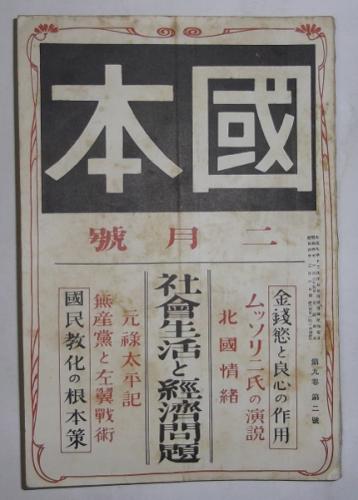 國本
二月號
第九卷 第二號
金錢慾と良心の作用
ムッソリニ氏の演説
北國情緒
社會生活と經濟問題
元祿太平記
無産黨と左翼戰術
國民教化の根本策